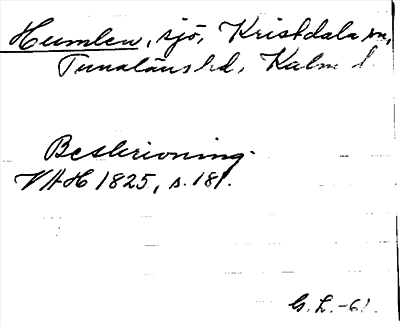 Humlen, sjö, Kristdala sn,
Tunaläns hd, Kalm l.
Beskrivning.
VAH 1825, s. 181.
G. L. -61.